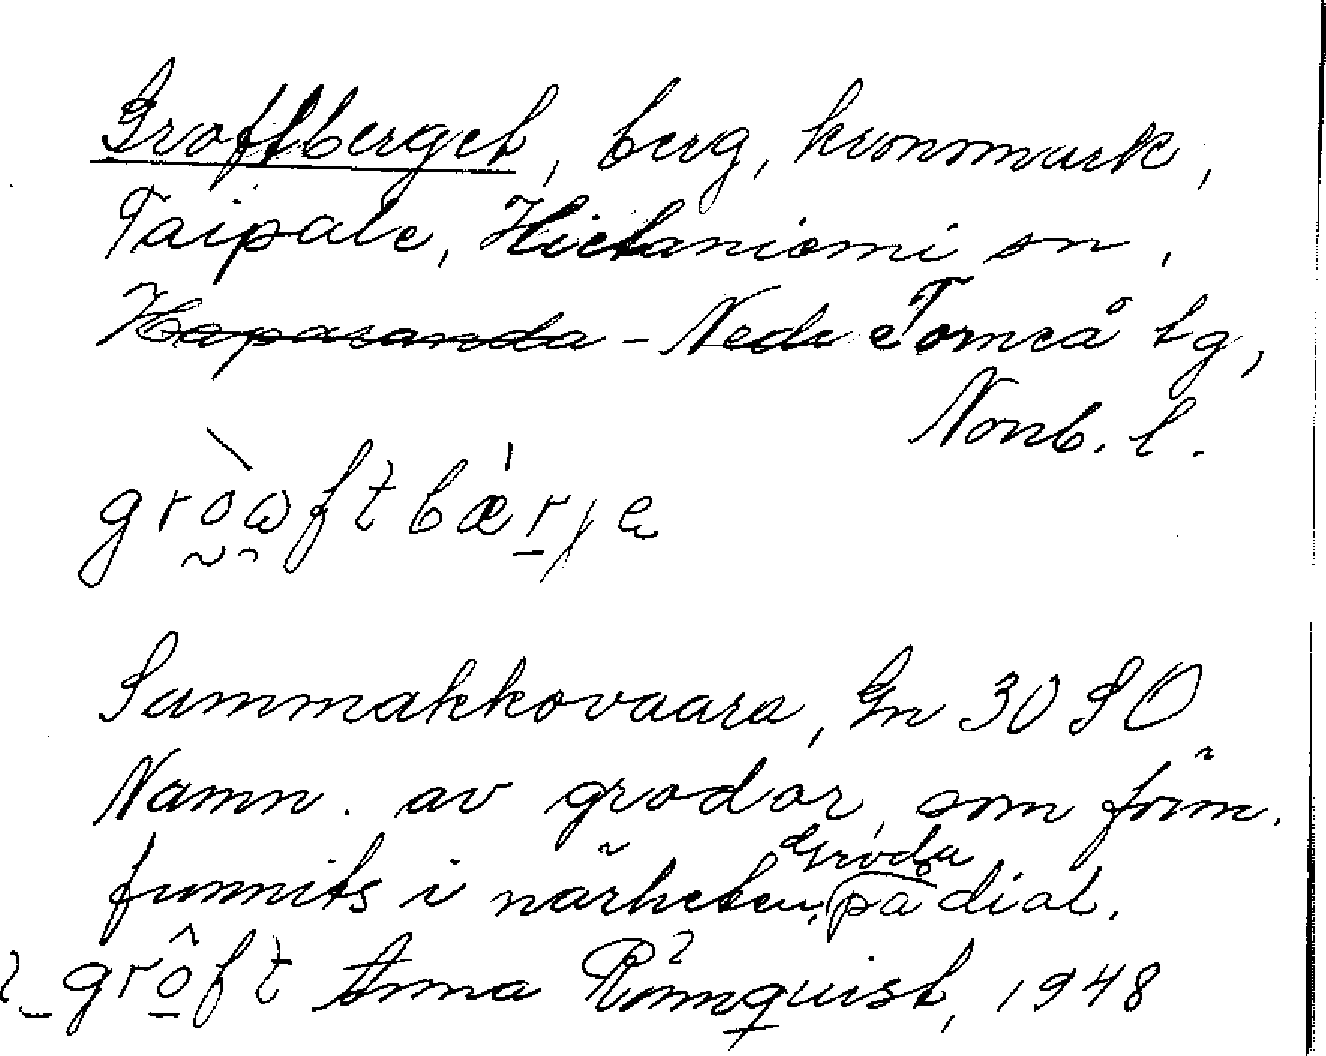 Groftberget, berg, kronomark,
Taipale, Hietaniemi sn,
Haparanda - Neder Torneå tg,
Nonb. l.
gròaftbærje
Sammakkovaara, Gn 30 SO
Namn. av grodor, som förm.
funnits i närheten, på dial.
Groda
gròft Anna Rönnquist, 1948